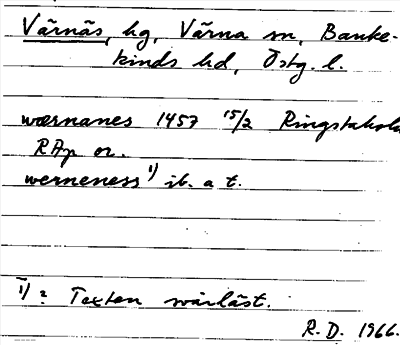 Värnäs, hg, Värna sn, Banke-
kinds hd, Östg. l.
wærnanes 1457 15/2 Ringstaholm
RAp or.
werneness 1) ib. a t.
1) : Texten svårläst.
R. D. 1966.